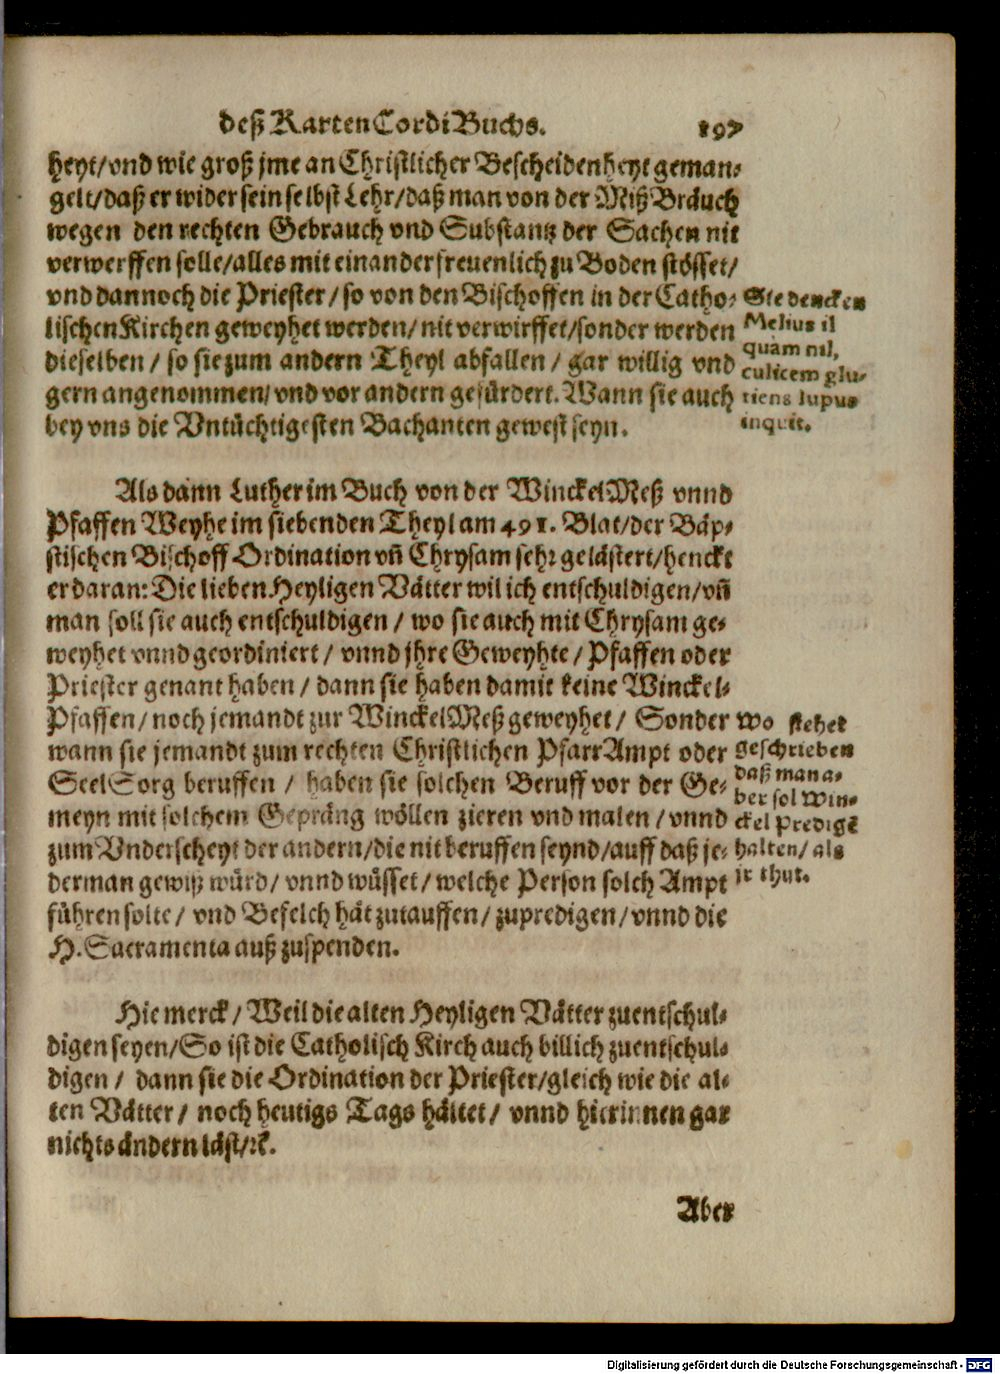 deß Karten Cordi Buchs. 197
heyt/vnd wie groß jme an Christlicher Bescheidenheyt geman-
gelt/daß er wider sein selbst Lehr/daß man von der Miß Bräuch
wegen den rechten Gebrauch vnd Substantz der Sachen nit
verwerffen solle/alles mit einander freuenlich zu Boden stösset/
vnd dannoch die Priester/so von den Bischoffen in der Catho-
lischen Kirchen geweyhet werden/nit verwirffet/sonder werden
dieselben/so sie zum andern Theyl abfallen/gar willig vnd
gern angenommen/vnd vor andern gefürdert. Wann sie auch
bey vns die Vntüchtigesten Bachanten gewest seyn.
Sie dencken
Melius il
quàm nil,
culicem glu-
tiens lupus
inquit.
Als dann Luther im Buch von der Winckel Meß vnnd
Pfaffen Weyhe im siebenden Theyl am 491. Blat/der Bäp-
stischen Bischoff Ordination vñ Chrysam sehr gelästert/henckt
er daran: Die lieben Heyligen Vätter wil ich entschuldigen/vñ
man soll sie auch entschuldigen/wo sie auch mit Chrysam ge-
weyhet vnnd geordiniert/vnnd jhre Geweyhte/Pfaffen oder
Priester genant haben/dann sie haben damit keine Winckel-
Pfaffen/noch jemandt zur Winckel Meß geweyhet/Sonder
wann sie jemandt zum rechten Christlichen PfarrAmpt oder
SeelSorg beruffen/haben sie solchen Beruff vor der Ge-
meyn mit solchem Gepräng wöllen zieren vnd malen/vnnd
zum Vnderscheyt der andern/die nit beruffen seynd/auff daß je-
derman gewiß würd/vnnd wüsset/welche Person solch Ampt
führen solte/vnd Befelch hät zutauffen/zupredigen/vnnd die
H. Sacramenta auß zuspenden.
Wo stehet
geschrieben
daß man a-
ber sol Win-
ckel Predigẽ
halten/als
jr thut.
Hie merck/Weil die alten Heyligen Vätter zuentschul-
digen seyen/So ist die Catholisch Kirch auch billich zuentschul-
digen/dann sie die Ordination der Priester/gleich wie die al-
ten Vätter/noch heutigs Tags hältet/vnnd hierinnen gar
nichts ändern läst/ꝛc.
Aber
Digitalisierung gefördert durch die Deutsche Forschungsgemeinschaft - DFG